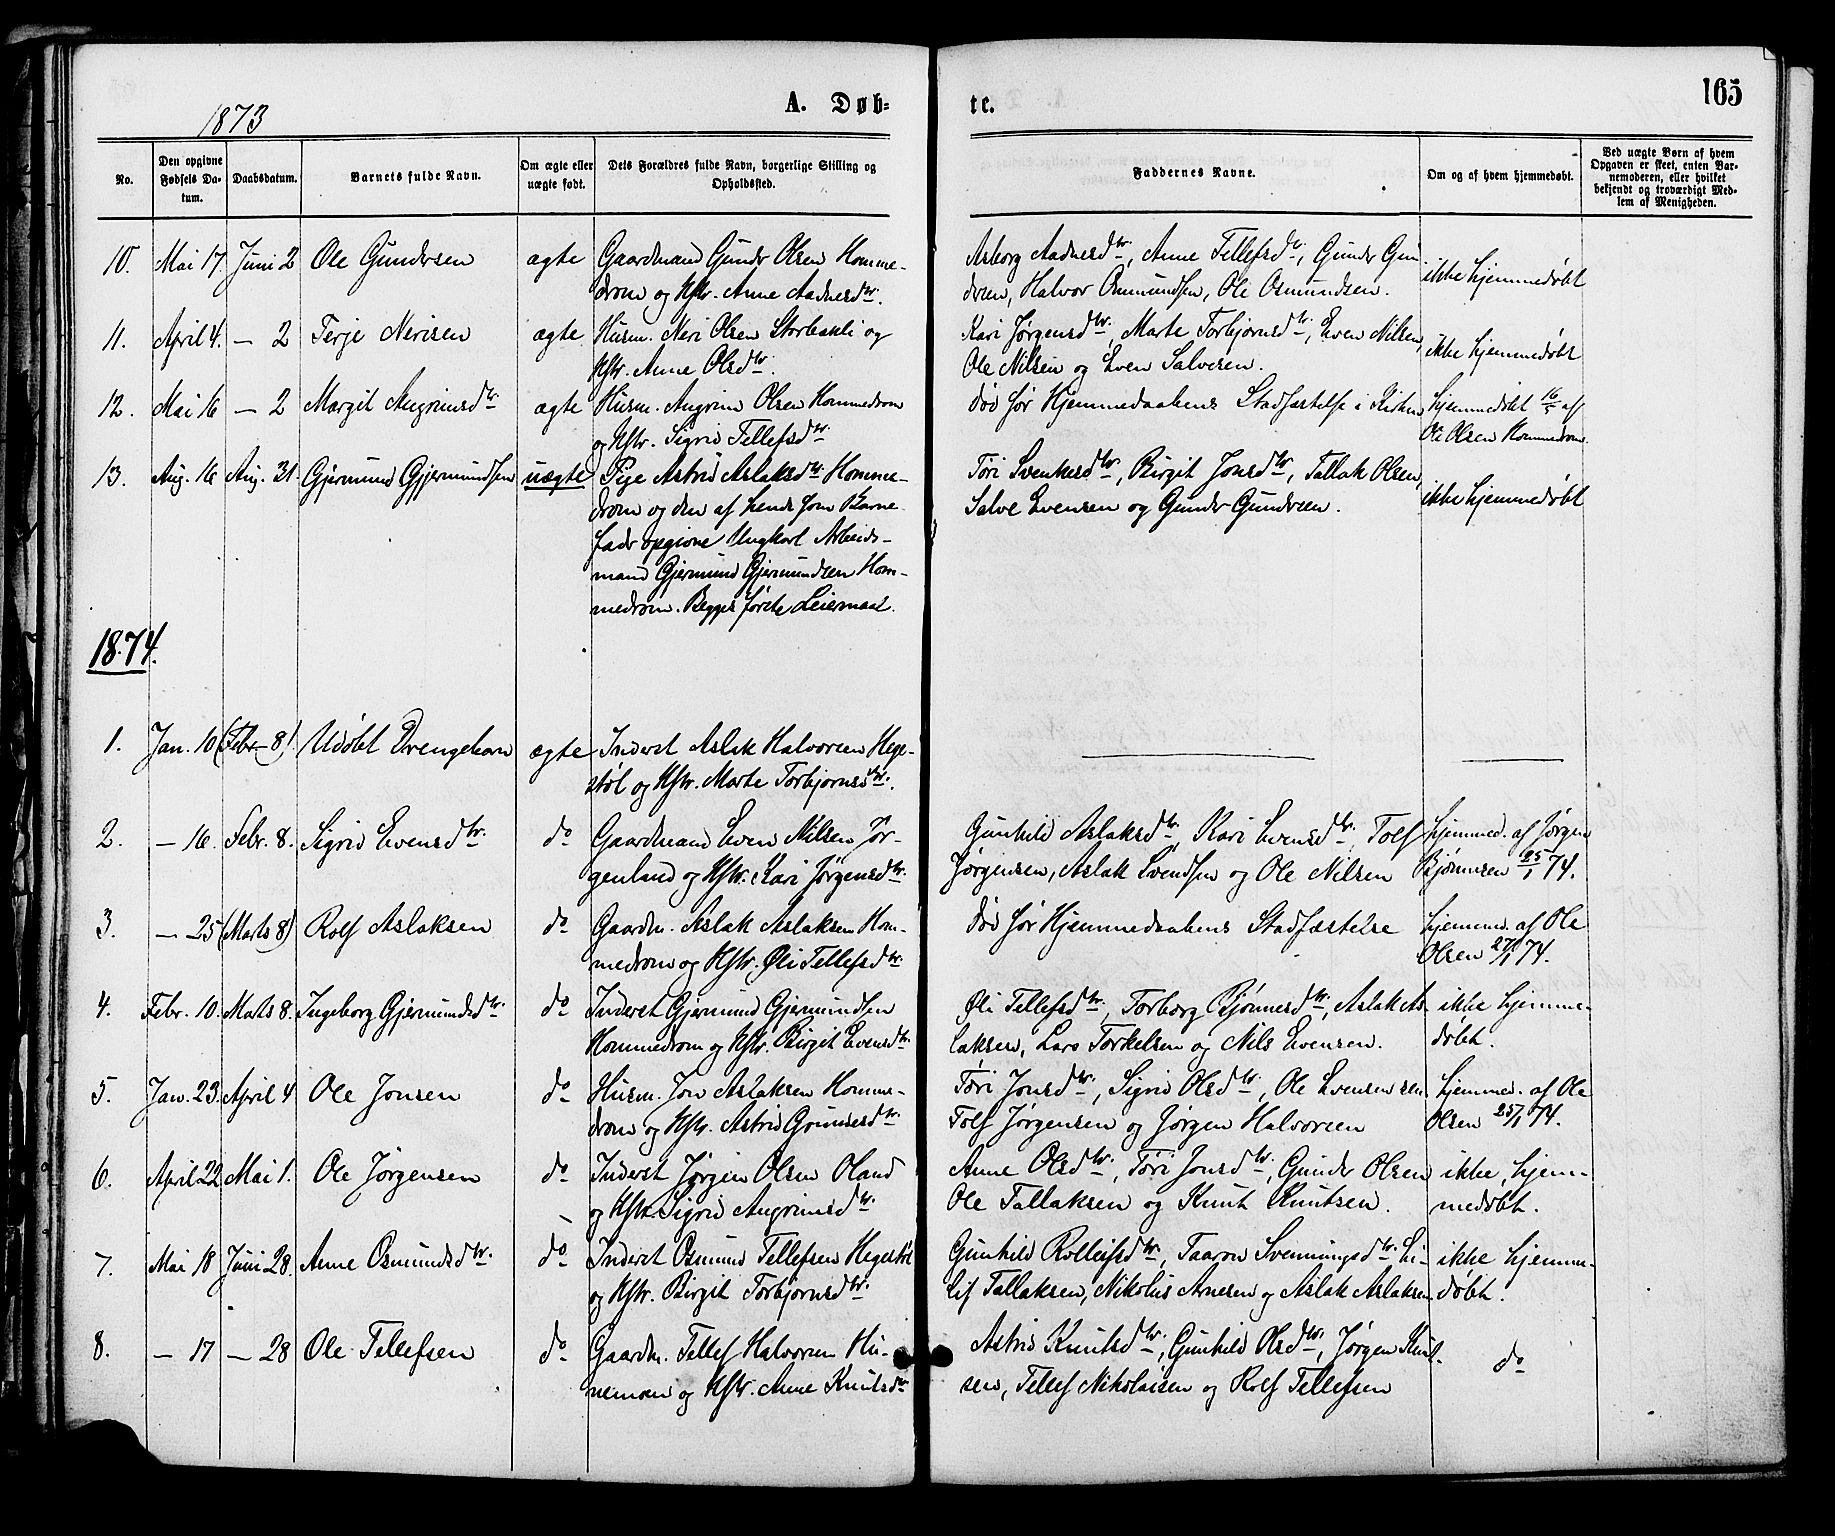 1873
A. Døb-
te.
165
No.
Den opgivne
Fødsels Da-
tum.
Daabsdatum.
Barnets fulde Navn.
Om ægte eller
uægte født.
Dets Forældres fulde Navn, borgerlige Stilling og
Opholdssted.
Faddernes Navne.
Om og af hvem hjemmedøbt.
Ved uægte Børn af hvem
Opgaven er skeet, enten Bar-
nemoderen, eller hvilket
bekjendt og troværdigt Med-
lem af Menigheden.
10. Mai 17. Juni 2 Ole Gundersen ægte Gaardmand Gunder Olsen Homme-
drom og Hstr. Anne Aadnesdtr.
Asborg Aadnesdtr, Anne Tellefsdtr, Gunder Gun-
dersen, Halvor Osmundsen, Ole Osmundsen.
ikke hjemmedøbt
11. April 4. — 2 Terje Nerisen ægte Husm. Neri Olsen Storbakli og
Hstr. Anne Olsdtr.
Kari Jørgensdtr, Marte Torbjørnsdtr, Even Nilsen,
Ole Nilsen og Even Salvesen.
ikke hjemmedøbt
12. Mai 16 — 2 Margit Augrimsdtr ægte Husm. Augrim Olsen Hommedrom
og Hstr. Sigrid Tellefsdtr
død før Hjemmedaabens Stadfæstelse i Kirken
hjemmedøbt 16/5 af
Ole Olsen Hommedrom.
13. Aug. 16 Aug. 31. Gjermund Gjermundsen uægte Pige Astrid Aslaksdtr. Homme-
drom og den af hende som Barne-
fader opgivne Ungkarl Arbeids-
mand Gjermund Gjermundsen Hom-
medrom. Begges første Leiermaal.
Tøri Svenkesdtr, Birgit Jonsdtr, Tallak Olsen,
Salve Evensen og Gunder Gundersen.
ikke hjemmedøbt
1874.
1. Jan. 10 (Febr. 8). Udøbt Drengebarn ægte Inderst Aslak Halvorsen Hege-
støl og Hstr. Marte Torbjørnsdtr.
2. — 16. Febr. 8. Sigrid Evensdtr. do Gaardmand Even Nilsen Jør-
genland og Hstr. Kari Jørgensdtr.
Gunhild Aslaksdtr, Kari Evensdtr, Tolf
Jørgensen, Aslak Svendsen og Ole Nilsen
hjemmed. af Jørgen
Bjørnsen 25/1 74.
3. — 25 (Marts 8) Rolf Aslaksen do Gaardm. Aslak Aslaksen Hom-
medrom og Hstr. Øli Tellefsdtr
død før Hjemmedaabens Stadfæstelse
hjemmed. af Ole
Olsen 27/1 74.
4. Febr. 10. Marts 8. Ingeborg Gjermundsdtr. do Inderst Gjermund Gjermundsen
Hommedrom og Hstr. Birgit Evensdtr.
Øli Tellefsdtr, Torborg Bjønnesdtr, Aslak As-
laksen, Lars Torkelsen og Nils Evensen.
ikke hjemme-
døbt.
5. Jan. 23. April 4 Ole Jonsen do Husm. Jon Aslaksen Homme-
drom og Hstr. Astrid Gundersdtr.
Tøri Jonsdtr, Sigrid Olsdtr, Ole Evensen sen.
Tolf Jørgensen og Jørgen Halvorsen
hjemmed. af Ole
Olsen 25/1 74.
6. April 22 Mai 1. Ole Jørgensen do Inderst Jørgen Olsen Oland
og Hstr. Sigrid Augrimsdtr.
Anne Olsdtr, Tøri Jonsdtr, Gunder Olsen
Ole Tallaksen og Knut Knutsen.
ikke, hjem-
medøbt.
7. Mai 18 Juni 28. Anne Osmundsdtr. do Inderst Osmund Tellefsen Hegestøl
og Hstr. Birgit Torbjørnsdtr.
Gunhild Rolleifsdtr, Taaron Svenningsdtr, Ei-
lif Tallaksen, Nikolus Arnesen og Aslak Aslaksen
ikke hjemme-
døbt.
8. — 17 — 28 Ole Tellefsen do Gaardm. Tellef Halvorsen Hu-
neman og Hstr. Anne Knutsdtr
Astrid Knutsdtr, Gunhild Olsdtr, Jørgen Knut-
sen, Tellef Nikolaisen og Rolf Tellefsen
do